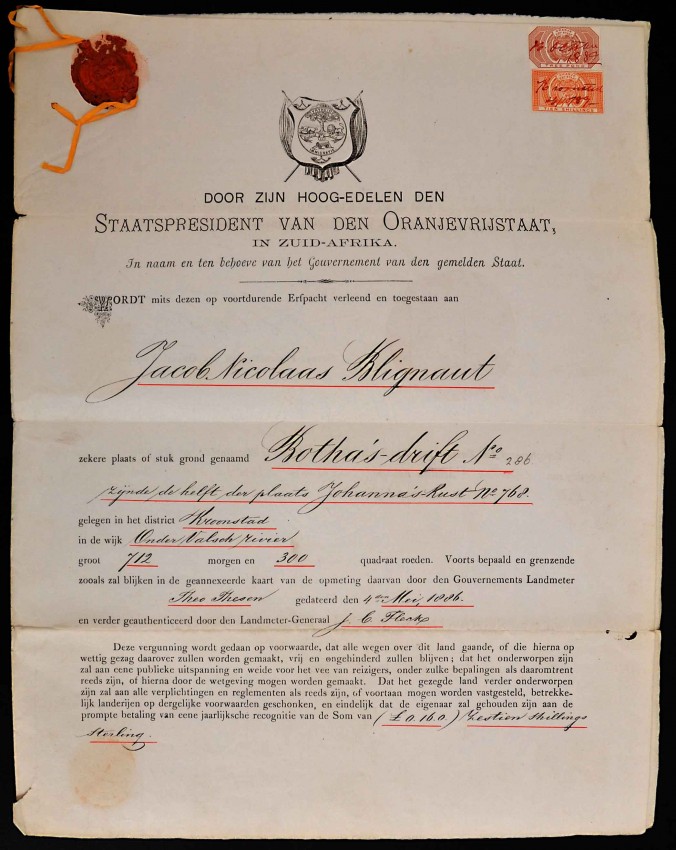 TIEN SHILLINGS
DOOR ZIJN HOOG-EDELEN DEN
STAATSPRESIDENT VAN DEN ORANJEVRIJSTAAT,
IN ZUID-AFRIKA.
In naam en ten behoeve van het Gouvernement van den gemelden Staat.
WORDT mits dezen op voortdurende Erfpacht verleend en toegestaan aan
Jacob Nicolaas Blignaut
zekere plaats of stuk grond genaamd Botha's-drift No 286
zijnde de helft der plaats Johanna's-Rust No 768.
gelegen in het district Kroonstad
in de wijk Onder Valsch rivier
groot 712 morgen en 300 quadraat roeden. Voorts bepaald en grenzende
zooals zal blijken in de geannexeerde kaart van de opmeting daarvan door den Gouvernements Landmeter
Theo Thesen gedateerd den 4den Mei, 1886.
en verder geauthenticeerd door den Landmeter-Generaal J. C. Fleck
Deze vergunning wordt gedaan op voorwaarde, dat alle wegen over dit land gaande, of die hierna op
wettig gezag daarover zullen worden gemaakt, vrij en ongehinderd zullen blijven; dat het onderworpen zijn
zal aan eene publieke uitspanning en weide voor het vee van reizigers, onder zulke bepalingen als daaromtrent
reeds zijn, of hierna door de wetgeving mogen worden gemaakt. Dat het gezegde land verder onderworpen
zijn zal aan alle verplichtingen en reglementen als reeds zijn, of voortaan mogen worden vastgesteld, betrekke-
lijk landerijen op dergelijke voorwaarden geschonken, en eindelijk dat de eigenaar zal gehouden zijn aan de
prompte betaling van eene jaarlijksche recognitie van de Som van (£0.16.0) Zestien Shillings
Sterling.